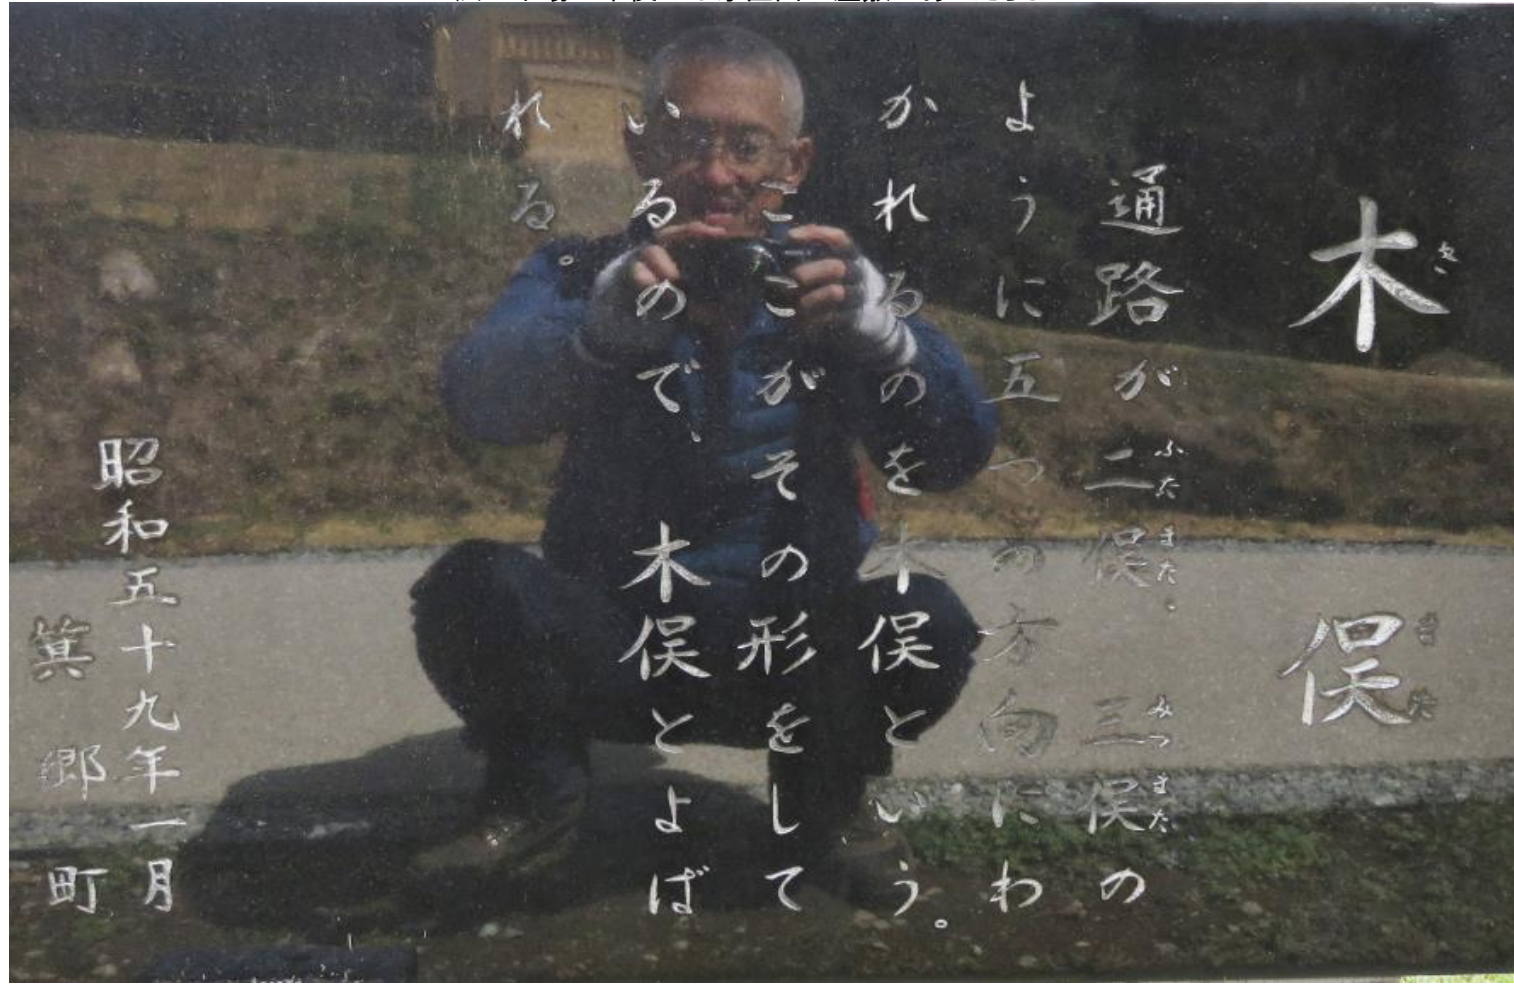 木俣
きまた
通路が二俣、三俣の
ふたまた みつまた
ように五つの方向にわ
かれるのを木俣という。
ここがその形をして
いるので、木俣とよば
れる。
昭和五十九年一月
箕郷町